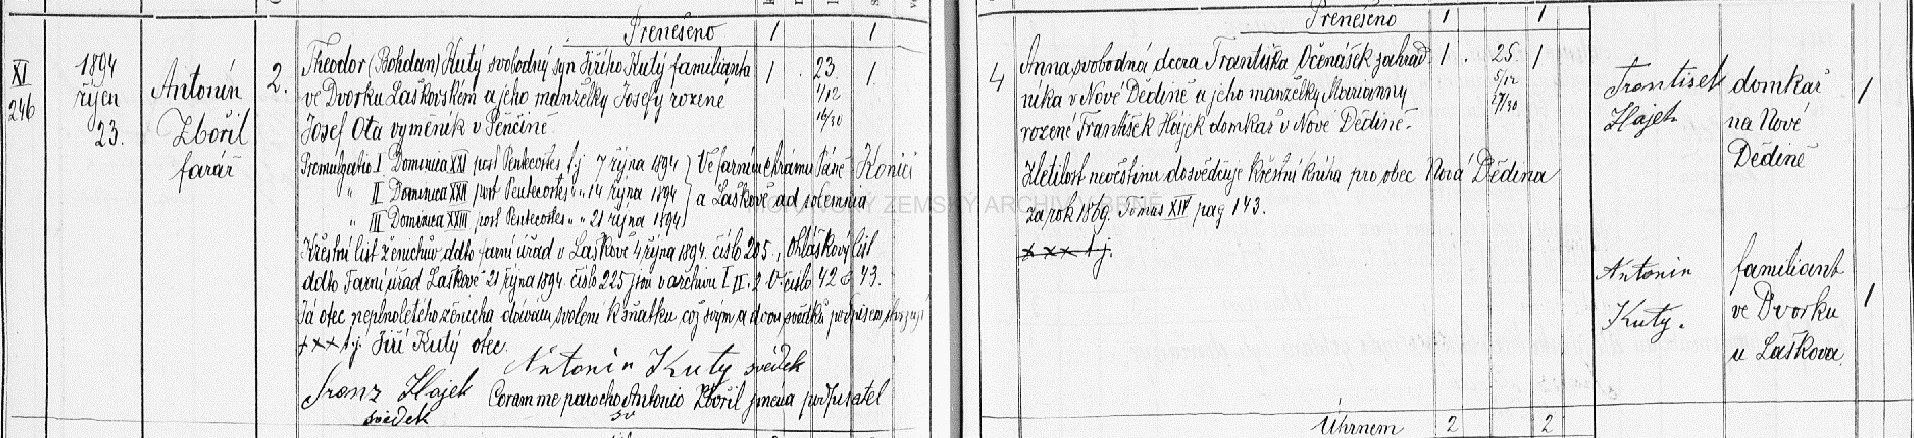 Přenešeno 1 1
XI
246
1894
říjen
23.
Antonín
Zbořil
farář
2.
Theodor (Bohdan) Kutý svobodný syn Jiřího Kutý familianta
ve Dvorku Laškovském a jeho manželky Josefy rozené
Josef Ota výměník v Pěnčíně.
1 . 23. 1
4/12
16/30
Promulgatio I Dominica XXI post Pentecostes t.j. 7 října 1894
" II Dominica XXII post Pentecostes " " 14 října 1894
" III Dominica XXIII post Pentecostes " " 21 října 1894
Ve farním chrámu Páně Konici
a Laškově ad solemnia
Křestní list ženichův ddto farní úřad v Laškově 4 října 1894. číslo 205., ohláškový list
ddto Farní úřad Laškově 21 října 1894 číslo 225 jsou v archivu I II. 2 V. číslo 42 & 43.
Já otec neplnoletého ženicha dávám svolení k sňatku, což svým a dvou svědků podpisem stvrzuji
+++ t.j. Jiří Kutý otec.
Antonín Kuty svědek
Franz Hajek
svědek
Coram me parocho Antonio Zbořil jména podpisatel
MORAVSKÝ ZEMSKÝ ARCHIV V BRNĚ
Přenešeno 1 1
4
Anna svobodná dcera Františka Očenášek zahrad
níka v Nové Dědině a jeho manželky Marianny
rozené František Hájek domkař v Nové Dědině.
1 . 25. 1
5/12
27/30
Zletilost nevěstinu dosvědčuje křestní kniha pro obec Nová Dědina
za rok 1869. Tomus XIV pag 143.
+++ t.j.
Frantisek
Hajek
domkař
na Nové
Dědině
1
Antonin
Kuty.
familiant
ve Dvorku
u Laškova.
1
Úhrnem 2 2